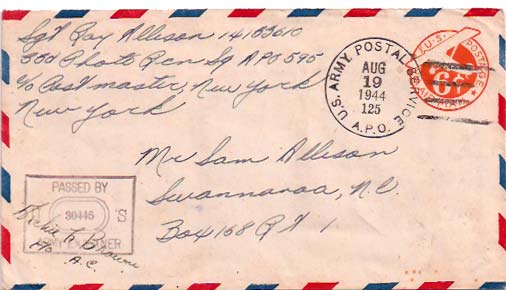 Sgt Ray Allison 14153610
33d Photo Rcn Sq APO 595
c/o Postmaster, New York
New York
U.S. ARMY POSTAL SERVICE
AUG
19
1944
125
A.P.O.
U.S. POSTAGE
6¢
AIR MAIL
Mr Sam Allison
Swannanoa, N.C.
Box 168 Rt 1
PASSED BY
30446 'S
ARMY EXAMINER
A.C.